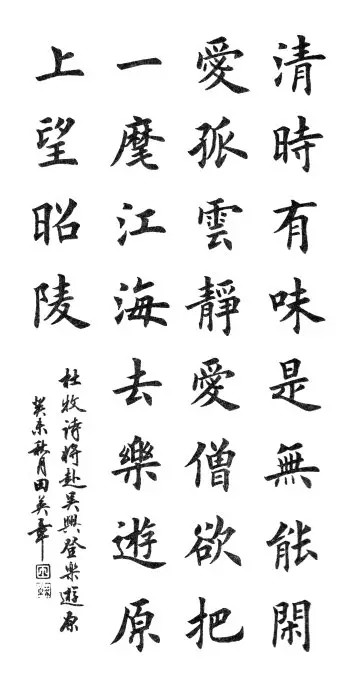 清時有味是無能閑
愛孤雲靜愛僧欲把
一麾江海去樂遊原
上望昭陵
杜牧诗将赴吴興登樂遊原
癸未秋月田英章